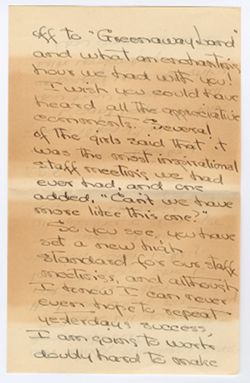 off to "Greenaway Land"
and what an enchanting
hour we had with you!
I wish you could have
heard all the appreciative
comments. Several
of the girls said that it
was the most inspirational
staff meeting we had
ever had, and one
added, "Can't we have
more like this one?"
So you see, you have
set a new high
standard for our staff
meetings, and although
I know I can never
even hope to repeat
yesterday's success,
I am going to work
doubly hard to make